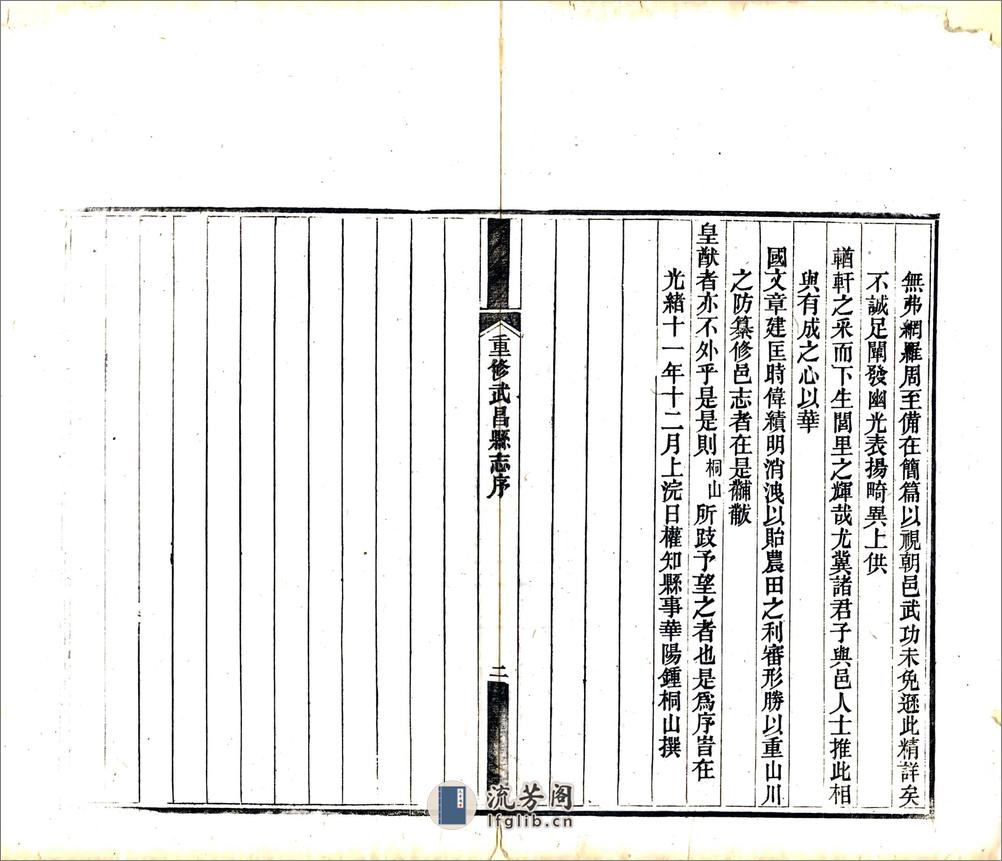 無弗網羅周至備在簡篇以視朝邑武功未免遜此精詳矣
不誠足闡發幽光表揚畸異上供
輶軒之采而下生閭里之輝哉尤冀諸君子與邑人士推此相
與有成之心以華
國文章建匡時偉績明消洩以貽農田之利審形勝以重山川
之防纂修邑志者在是黼黻
皇猷者亦不外乎是是則桐山所跂予望之者也是爲序旹在
光緒十一年十二月上浣日權知縣事華陽鍾桐山撰
重修武昌縣志序
二
流芳阁
lfglib.cn